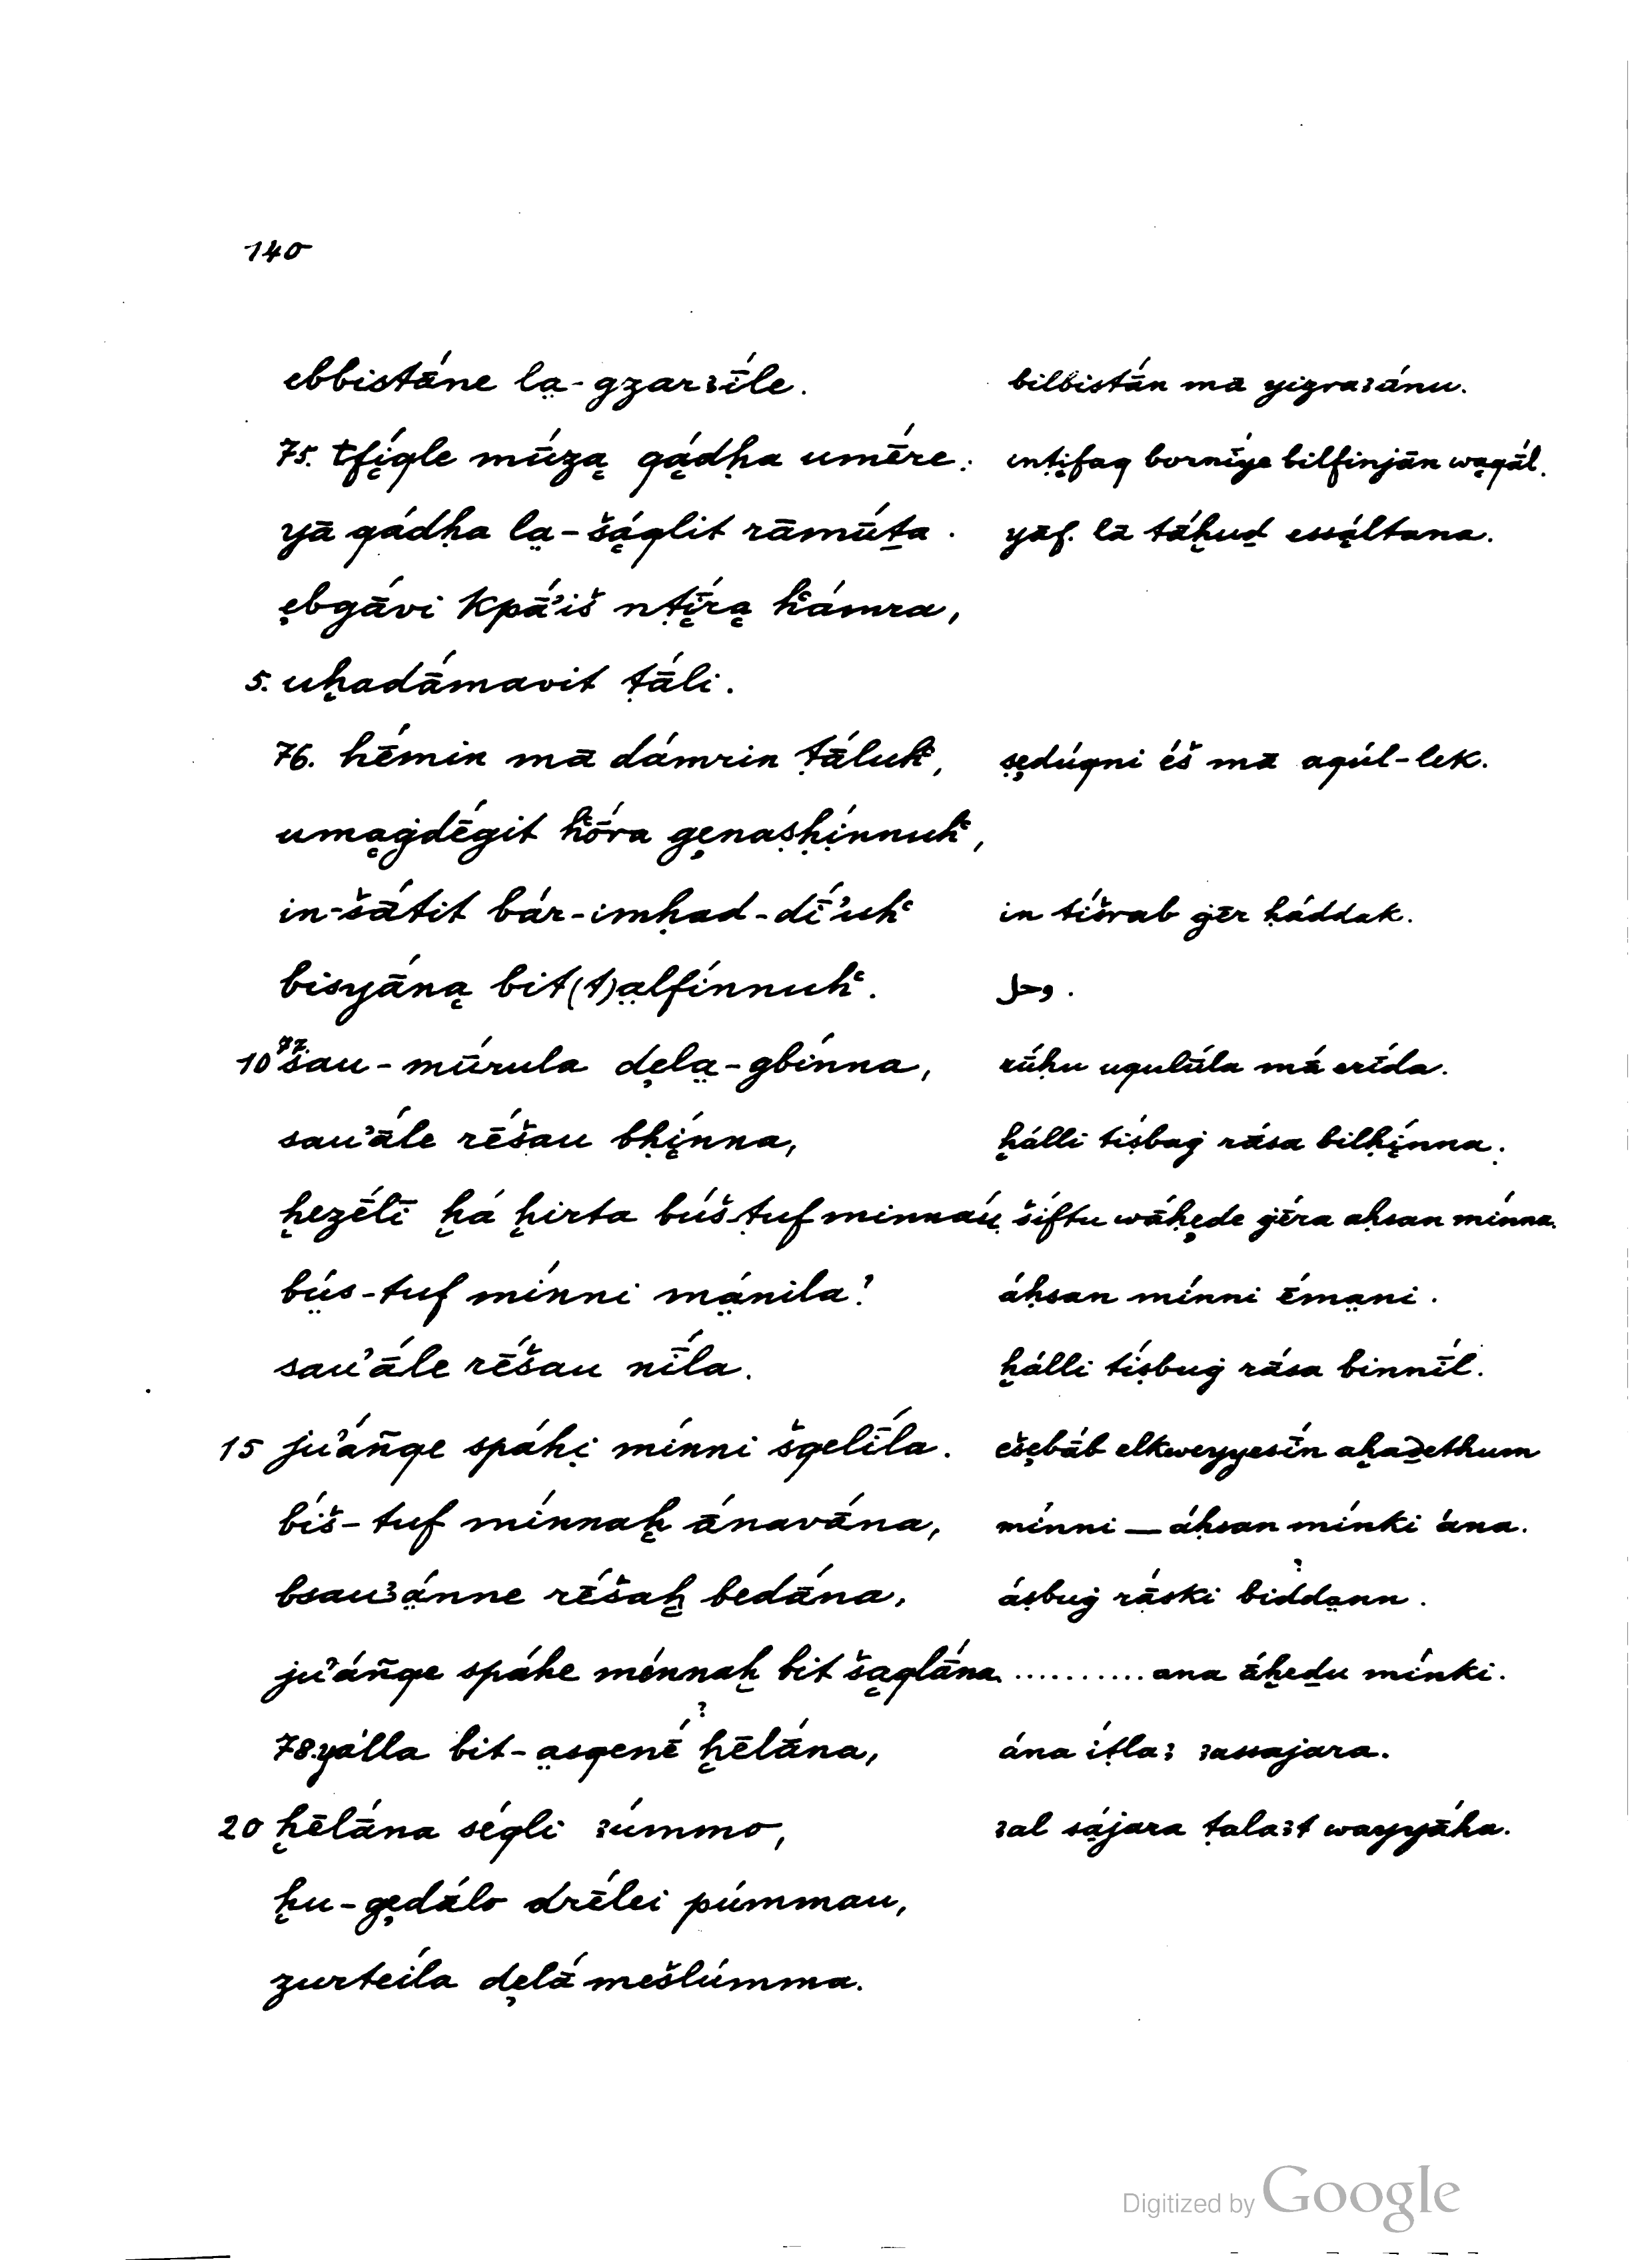 140
ebbistā́ne la̤-gzarꜣī́le. bilbistā́n mā yizraꜣánu.
75. tfí̜qle mū́za̜ qá̜dḥa umḗre: intí̜faq borníye bilfinjān wa̜qā́l.
yā qádḥa la̤-šá̜qlit rāmū́ṯa. yāq. lā tā́ḫuḏ essá̜ltana.
ẹbgā́vi kpā́ʾiš nṭī̜́ra̜ ḣámra,
5. uḫadā́mavit ṭā́li.
76. hḗmin mā dámrin ṭā́luḣ, ṣẹdúqni éš mā aqúl-lek.
uma̜ġdḗgit ḣṓra gẹnaṣḥínnuḣ,
in-šā́tit bár-imḥad-dī́ʾuḣ in tíšrab ġēr ḥáddak.
bisyā́na̜ bit(t)a̤lfínnuḣ. وحل.
10 77. šau-mū́rula dẹla̤-gbínna, rū́ḥu uqulū́la mā́ erī́da.
sauʾā́le rḗšau bḥí̜nna, ḫálli tiṣbaġ rāsa bilḥí̜nna.
ḫezḗlī ḫá ḫirta búš-ṭuf minnáu̜ šíftu wāḥẹde ġéra aḥsan mínna.
bṳ́s-tuf mínni má̤nila? áḥsan mínni éma̤ni.
sauʾā́le rḗšau nī́la. ḫálli tíṣbuġ rása binnī́l.
15 juʾáñqe spáhi̜ mínni šqelī́la. ešẹbáb elkweyyesī́n aḫaḏethum
bíš-tuf mínnaḫ ānavā́na, mínni — áḥsan mínki ána.
bsauꜣá̤nne rḗšaḫ bedā́na, áṣbuġ rā́ski bidda̤nn ?.
juʾáñqe spáhe ménnaḫ bit ša̜qlā́na. .......... ana ā́ḫeḏu mínki.
78. yálla bit-a̤sqenḗ ? ḫēlā́na, ána íṭlaꜣ ꜣassajara.
20 ḫēlā́na séqli ꜣúmmo, ꜣal sájara ṭalaꜣt wayyā́ha.
ḫu-gẹdā́lo drḗlei púmmau,
zurteíla dẹlā́ mešlúmma.
Digitized by Google